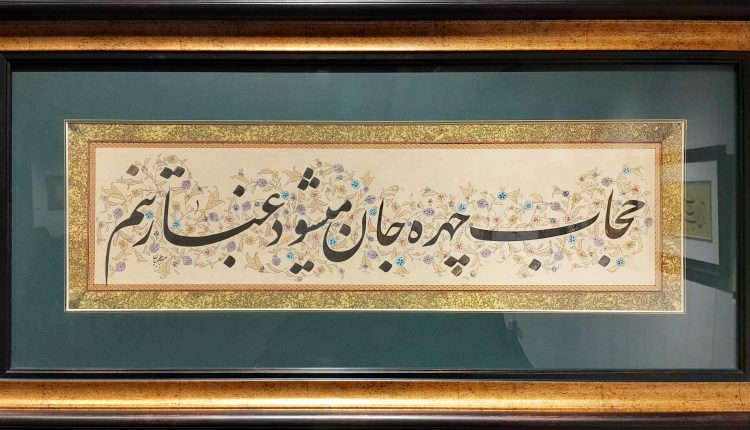 حجاب چهره جان میشود غبار تنم